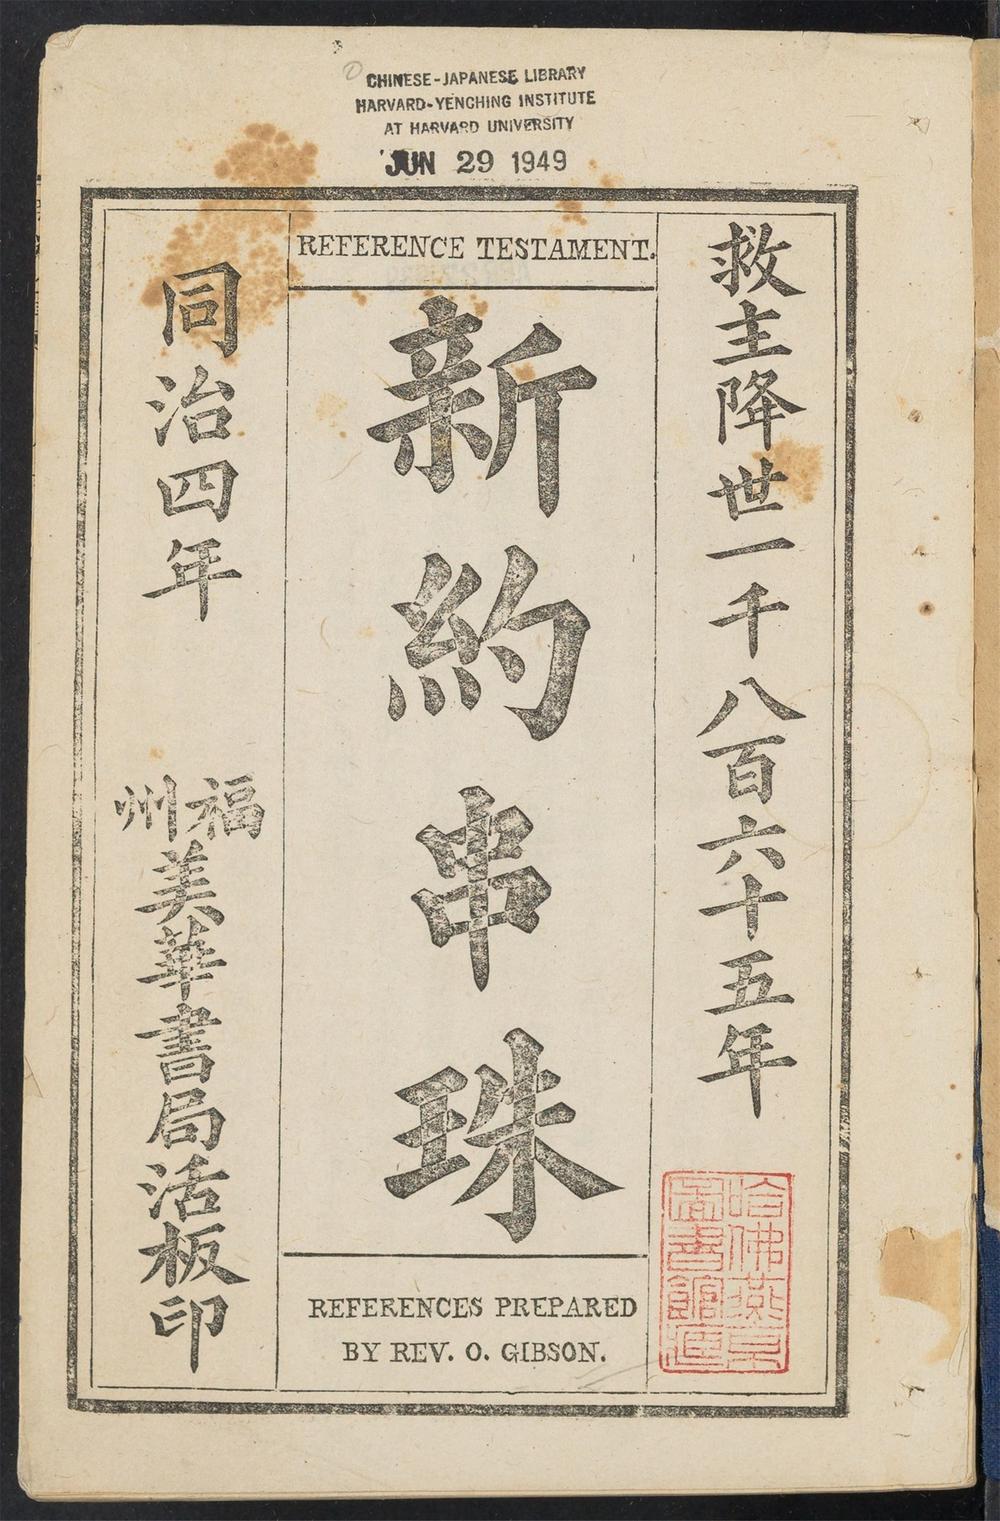 CHINESE-JAPANESE LIBRARY
HARVARD-YENCHING INSTITUTE
AT HARVARD UNIVERSITY
JUN 29 1949
救主降世一千八百六十五年
REFERENCE TESTAMENT.
新約串珠
REFERENCES PREPARED
BY REV. O. GIBSON.
同治四年
福州
美華書局活板印
哈佛燕京
圖書館珍藏